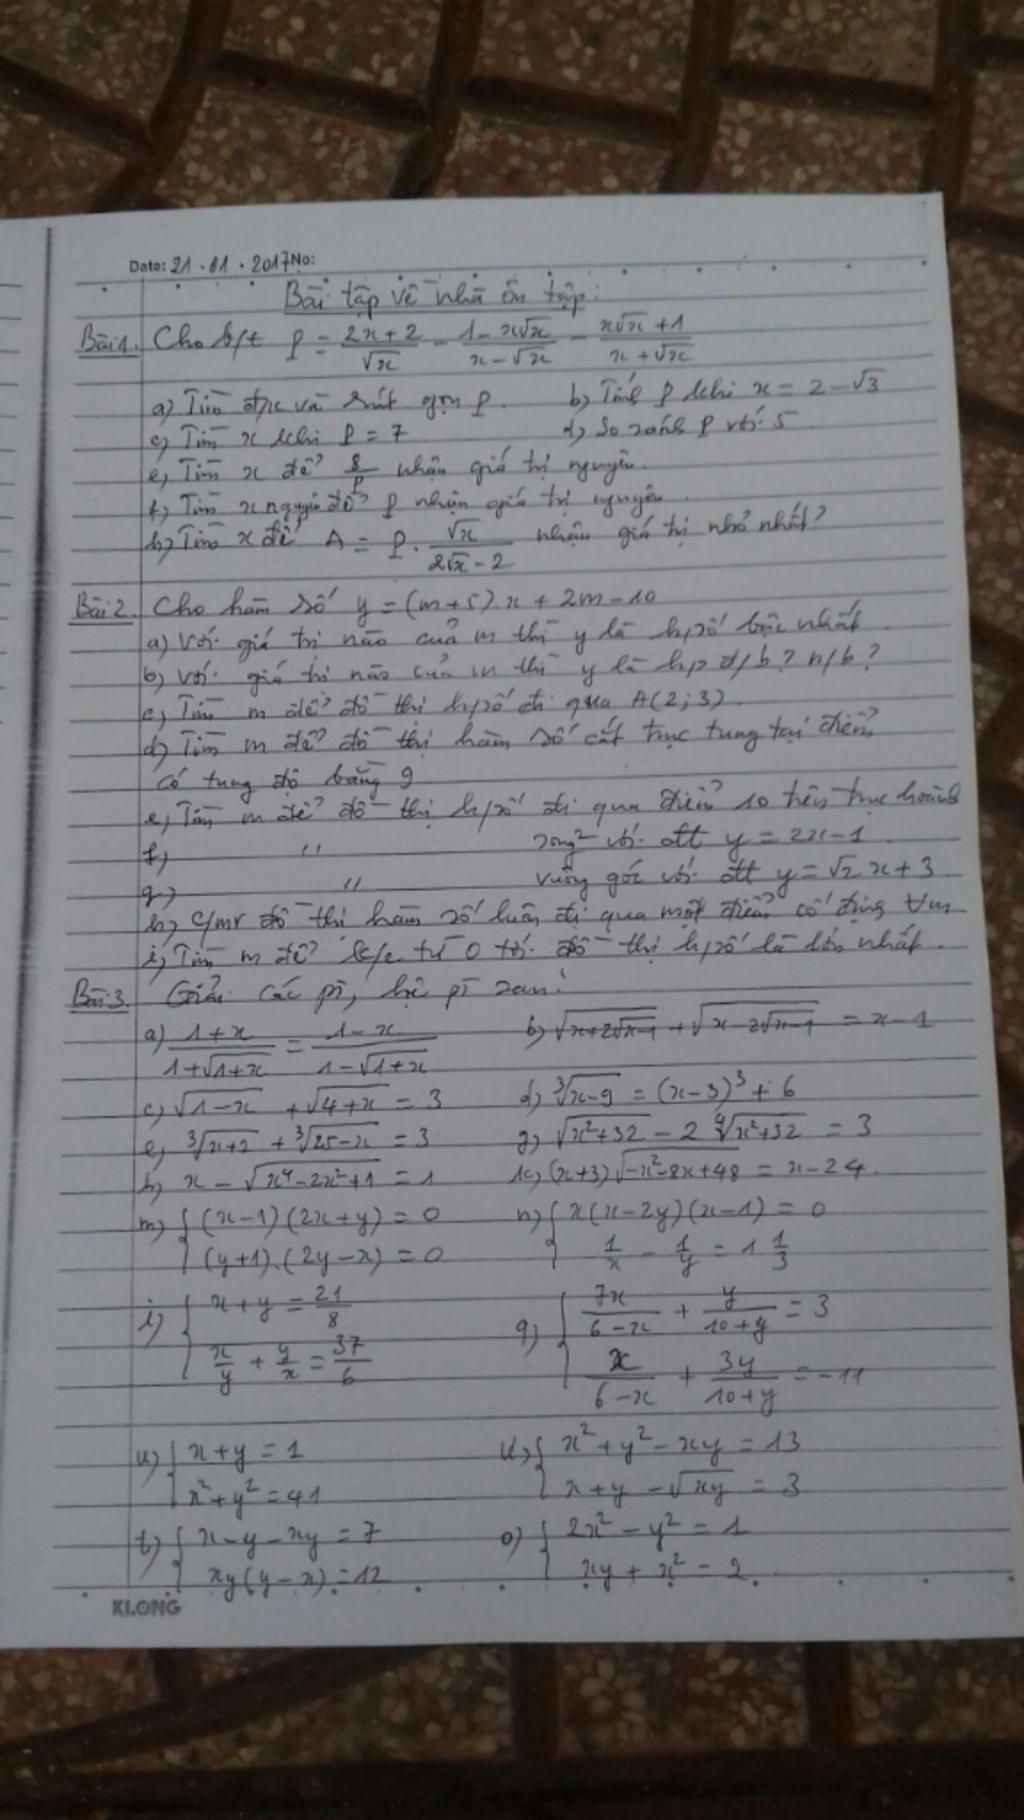 Date: 21.01.2017 No:
Bài tập về nhà ôn tập:
Bài 1. Cho b/t P = (2x+2)/√x − (1−x√x)/(x−√x) − (x√x+1)/(x+√x)
a) Tìm đ/k và rút gọn P. b) Tính P khi x = 2−√3
c) Tìm x khi P = 7 d) So sánh P với 5
e) Tìm x để 8/P nhận giá trị nguyên.
f) Tìm x nguyên để P nhận giá trị nguyên.
h) Tìm x để A = P . √x/(2√x−2) nhận giá trị nhỏ nhất?
Bài 2. Cho hàm số y = (m+5).x + 2m−10
a) Với giá trị nào của m thì y là h/số bậc nhất
b) Với giá trị nào của m thì y là h/s đ/b? n/b?
c) Tìm m để đồ thị h/số đi qua A(2;3).
d) Tìm m để đồ thị hàm số cắt trục tung tại điểm
có tung độ bằng 9
e) Tìm m để đồ thị h/số đi qua điểm 10 trên trục hoành
f) " song² với đtt y = 2x−1
g) " vuông góc với đtt y = √2 x + 3
h) c/mr đồ thị hàm số luôn đi qua một điểm cố định ∀m
i) Tìm m để k/c từ O tới đồ thị h/số là lớn nhất.
Bài 3. Giải các pt, hệ pt sau:
a) (1+x)/(1+√(1+x)) = (1−x)/(1−√(1+x)) b) √(x+2√(x−1)) + √(x−2√(x−1)) = x−1
c) √(1−x) + √(4+x) = 3 d) ∛(x−9) = (x−3)³ + 6
e) ∛(x+2) + ∛(25−x) = 3 g) √(x²+32) − 2 ∜(x²+32) = 3
h) x − √(x⁴−2x²+1) = 1 k) (x+3)√(−x²−8x+48) = x−24.
m) { (x−1)(2x+y) = 0 n) { x(x−2y)(x−1) = 0
(y+1).(2y−x) = 0 1/x − 1/y = 1 1/3
i) { x+y = 21/8 q) { 7x/(6−x) + y/(10+y) = 3
x/y + y/x = 37/6 x/(6−x) + 3y/(10+y) = −11
u) { x+y = 1 u) { x²+y²−xy = 13
x²+y² = 41 x+y−√(xy) = 3
t) { x−y−xy = 7 o) { 2x²−y² = 1
xy(y−x) = 12 xy + x² = 2.
KLONG